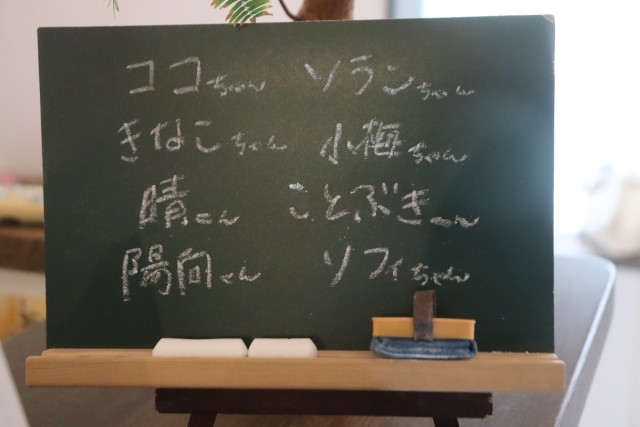 ココちゃん ソランちゃん
きなこちゃん 小梅ちゃん
晴くん ことぶきくん
陽向くん ソフィちゃん